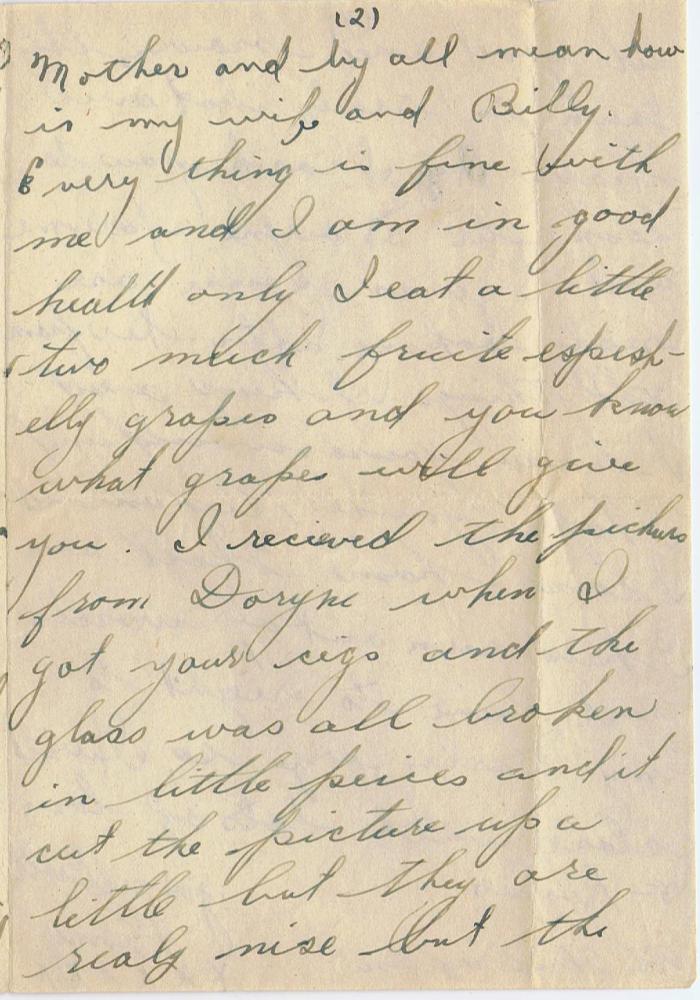 (2)
Mother and by all mean how
is my wife and Billy.
Every thing is fine with
me and I am in good
healt only I eat a little
two much fruite espesh-
elly grapes and you know
what grapes will give
you. I recieved the pichurs
from Doryne when I
got your cigs and the
glass was all broken
in little peices and it
cut the picture up a
little but they are
realy nise but the